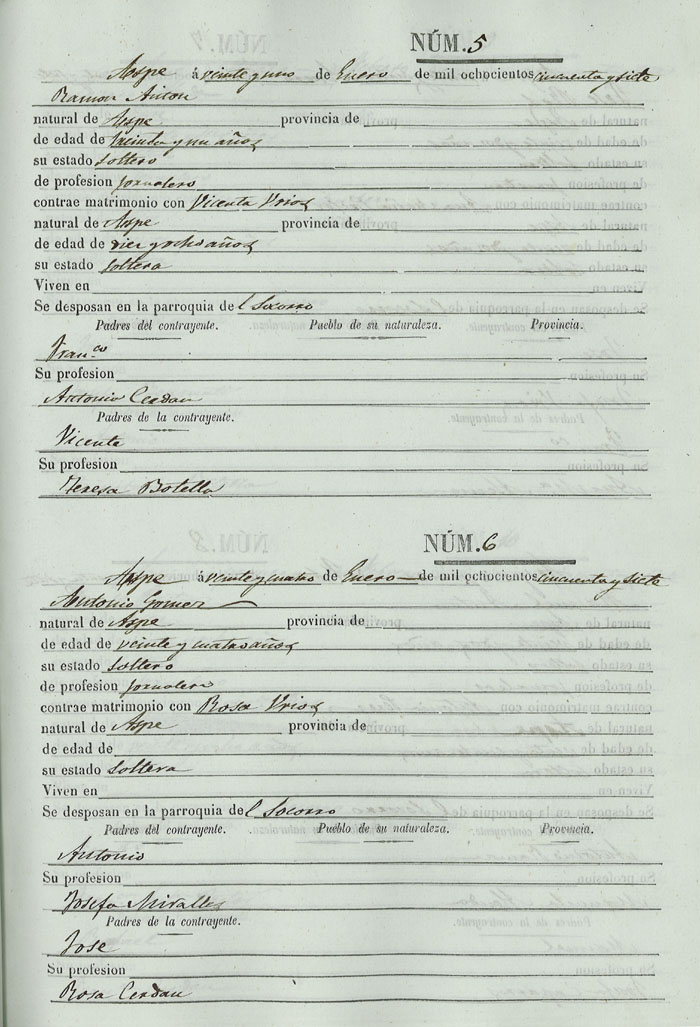 NÚM. 5
Aspe á veinte y uno de Enero de mil ochocientos cincuenta y siete
Ramon Anton
natural de Aspe provincia de
de edad de treinta y un años
su estado soltero
de profesion jornalero
contrae matrimonio con Vicenta Urios
natural de Aspe provincia de
de edad de diez y ocho años
su estado soltera
Viven en
Se desposan en la parroquia del Socorro
Padres del contrayente. Pueblo de su naturaleza. Provincia.
Fran.co
Su profesion
Antonia Cerdan
Padres de la contrayente.
Vicente
Su profesion
Teresa Botella
NÚM. 6
Aspe á veinte y cuatro de Enero de mil ochocientos cincuenta y siete
Antonio Gomez
natural de Aspe provincia de
de edad de veinte y cuatro años
su estado soltero
de profesion jornalero
contrae matrimonio con Rosa Urios
natural de Aspe provincia de
de edad de
su estado soltera
Viven en
Se desposan en la parroquia del Socorro
Padres del contrayente. Pueblo de su naturaleza. Provincia.
Antonio
Su profesion
Josefa Miralles
Padres de la contrayente.
Jose
Su profesion
Rosa Cerdan